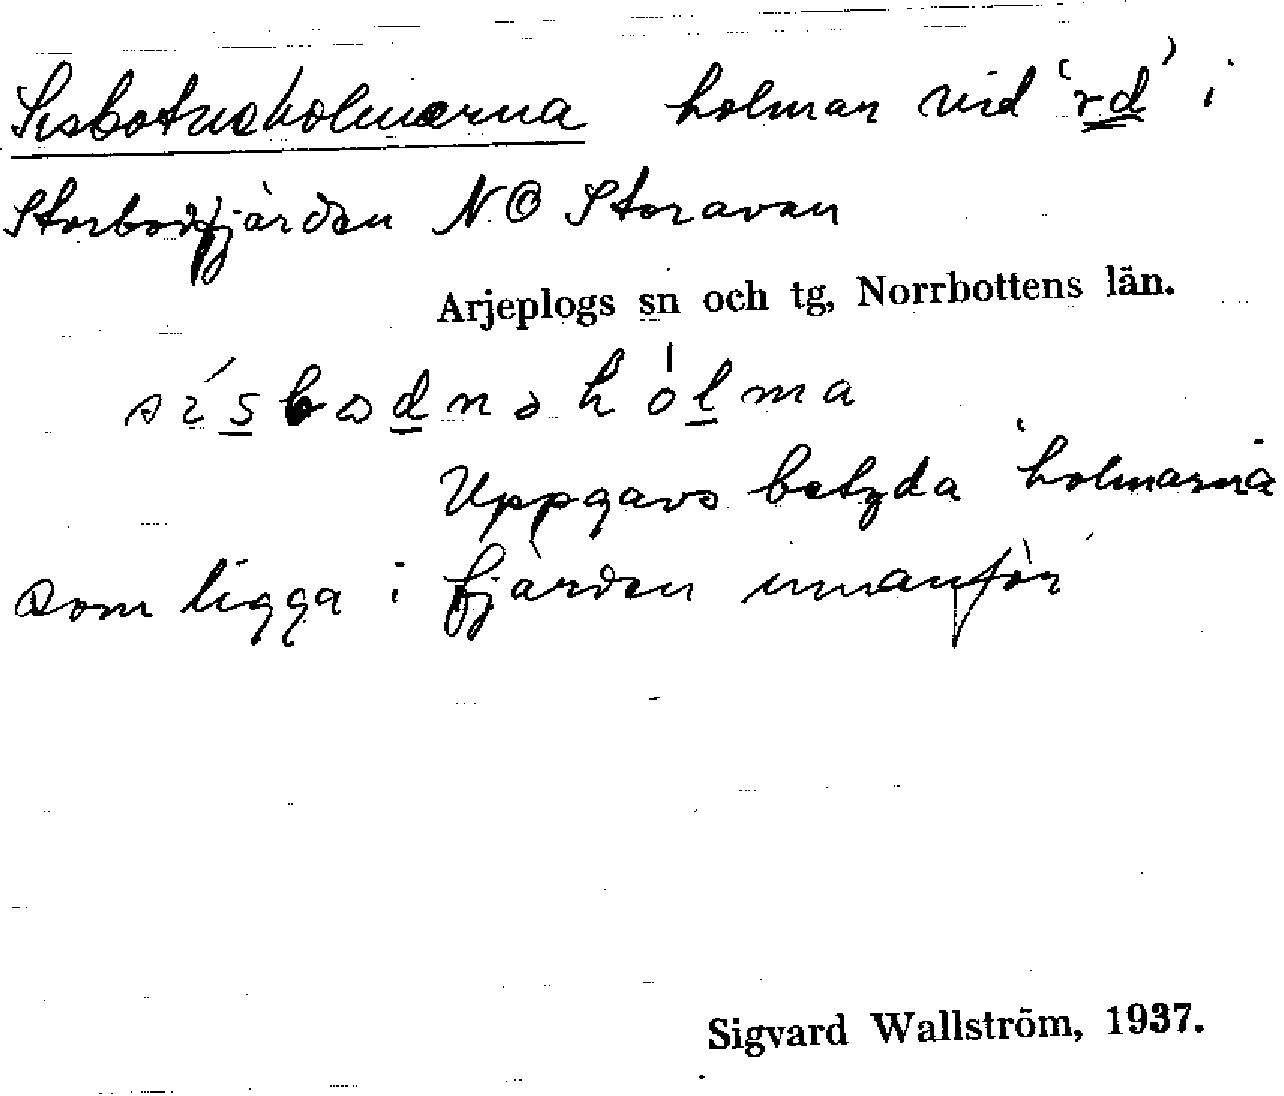 Sisbotneholmarna holmar vid 'rd' i
Storbodfjärden NO Storavan
Arjeplogs sn och tg, Norrbottens län.
sísbodnəhólma
Uppgavs betyda 'holmarna
som ligga i fjärden innanför'
Sigvard Wallström, 1937.